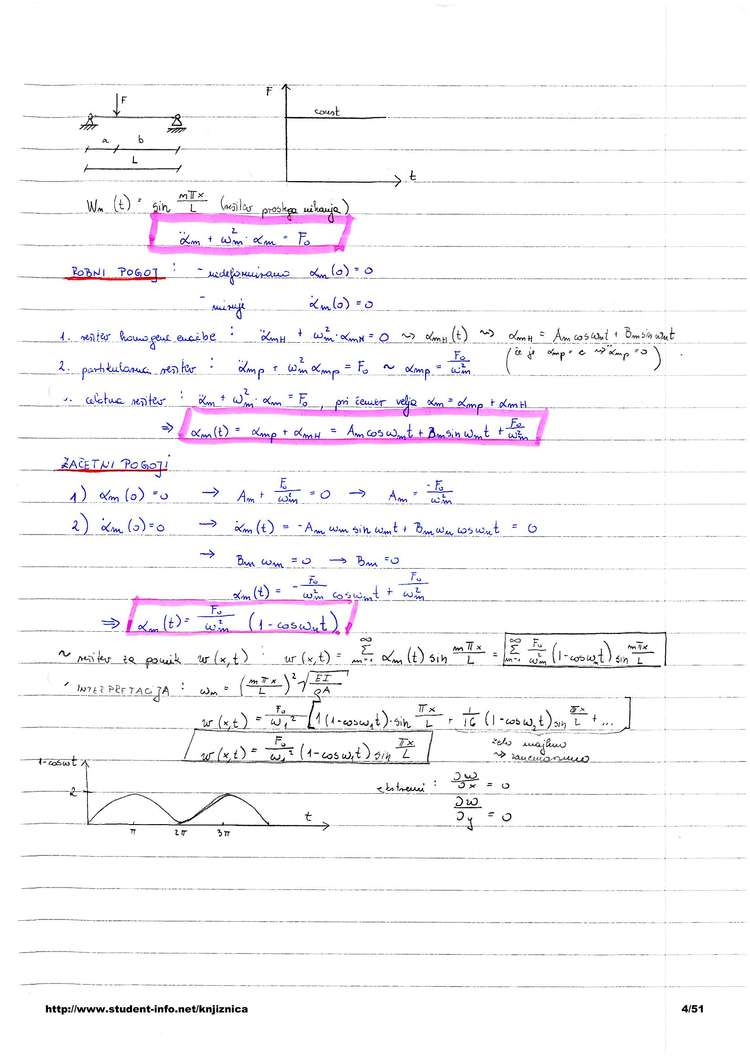 F
F
const
a b
L
t
Wm (t) = sin mπx/L (rešitev prostega nihanja)
α̈m + ωm² · αm = F₀
ROBNI POGOJ : - nedeformirano αm(0) = 0
- miruje α̇m(0) = 0
1. rešitev homogene enačbe : α̈mH + ωm² · αmH = 0 ~> αmH(t) ~> αmH = Am cos ωmt + Bm sin ωmt
(če je αmp = c ~> α̈mp = 0)
2. partikularna rešitev : α̈mp + ωm² αmp = F₀ ~ αmp = F₀/ωm²
celotna rešitev : α̈m + ωm² · αm = F₀, pri čemer velja αm = αmp + αmH
⇒ αm(t) = αmp + αmH = Am cos ωmt + Bm sin ωmt + F₀/ωm²
ZAČETNI POGOJI
1) αm(0) = 0 → Am + F₀/ωm² = 0 → Am = -F₀/ωm²
2) α̇m(0) = 0 → α̇m(t) = -Am ωm sin ωmt + Bm ωm cos ωmt = 0
→ Bm ωm = 0 → Bm = 0
αm(t) = -F₀/ωm² cos ωmt + F₀/ωm²
⇒ αm(t) = F₀/ωm² (1 - cos ωmt)
~ rešitev za pomik w(x,t) : w(x,t) = ∞ Σ m=1 αm(t) sin mπx/L = ∞ Σ m=1 F₀/ωm² (1 - cos ωmt) sin mπx/L
INTERPRETACIJA : ωm = (mπx/L)² √EI/ρA
w(x,t) = F₀/ω₁² [1(1 - cos ω₁t) · sin πx/L + 1/16 (1 - cos ω₂t) sin πx/L + ...]
w(x,t) = F₀/ω₁² (1 - cos ω₁t) sin πx/L
zelo majhno
~> zanemarimo
1-cos ωt
2
t
π 2π 3π
ekstremi : ∂w/∂x = 0
∂w/∂y = 0
http://www.student-info.net/knjiznica 4/51